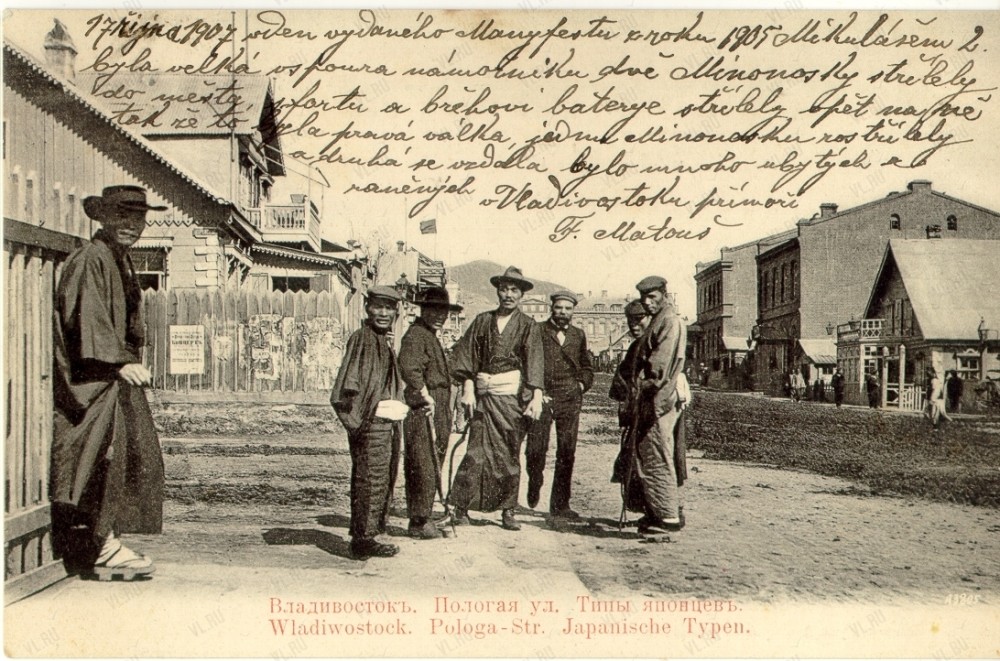 17 října 1907 v den vydaného Manyfestu z roku 1905 Mikulášem 2.
byla velká vspoura námořníku dvě Minonosky střílely
do města, fortu a břehovi baterye střílely opět na ně
tak že to byla pravá válka, jednu Minonosku rostřílely
a druhá se vzdala bylo mnoho ubytých a
raněných v Vladivostoku přimoři
F. Matouš
Владивостокъ. Пологая ул. Типы японцевъ.
Wladiwostock. Pologa-Str. Japanische Typen.
VL.RU